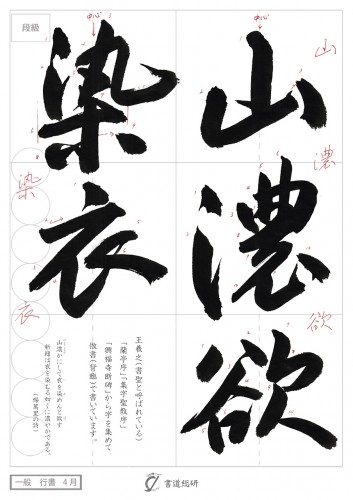 段級
中心
中心
山濃欲
染衣
山
濃
欲
染
衣
王羲之(書聖と呼ばれている)
「蘭亭序」「集字聖教序」
「興福寺断碑」から字を集めて
倣書(背臨)で書いています。
山濃かにして衣を染めんと欲す
新緑は衣を染むる如くに濃やかである。
(楊萬里の詩)
一般 行書 4月
書道総研